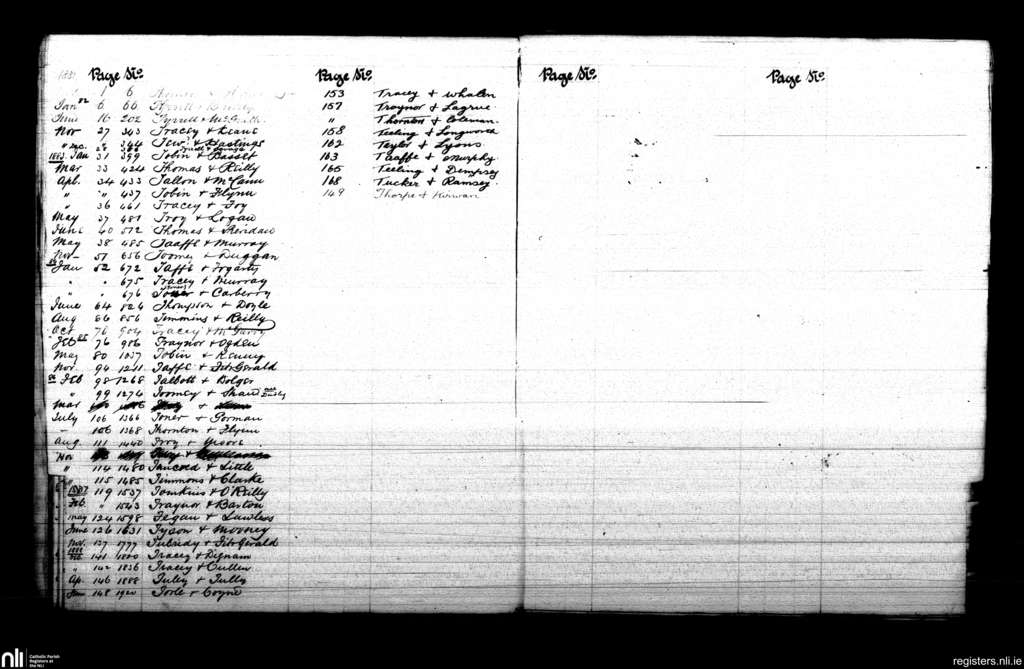 Page No.
1 6
Jan 82 6 66 Tyrrell & Reilly
June 16 202 Tyrrell & McGrath
Nov 27 343 Tracey & Deane
" Dec. 344 Tew & Hastings
1883 Jan 31 399 Tobin & Basset
Mar 33 424 Thomas & Reilly
Apl. 34 433 Tallon & McCann
" " 437 Tobin & Flynn
" 36 461 Tracey & Foy
May 37 481 Troy & Logan
June 40 512 Thomas & Sheridan
May 38 485 Taaffe & Murray
Nov 51 656 Toomey & Duggan
Jan 52 672 Taffe & Fogarty
" " 675 Tracey & Murray
" " 676 Toner & Carberry
June 64 826 Thompson & Doyle
Aug 66 856 Timmins & Reilly
Oct 70 904 Tracey & McGarry
Feb 85 76 986 Traynor & Ogden
May 80 1037 Tobin & Kenny
Nov. 94 1211 Taffe & FitzGerald
86 Feb 98 1268 Talbott & Bolger
" 99 1274 Toomey &
Mar
July 106 1366 Toner & Gorman
106 1368 Thornton & Flynn
Aug. 111 1440 Troy & Moore
Nov
" 114 1480 Tancred & Little
" 115 1485 Timmons & Clarke
1887 119 1537 Tomkins & O'Reilly
Feb. " 1543 Traynor & Barton
May 124 1598 Tegan & Lawless
June 126 1631 Tyson & Mooney
Nov. 137 1777 Tubridy & FitzGerald
1888 Feb. 141 1820 Tracey & Dignam
" 142 1836 Tracey & Cullen
Ap. 146 1888 Tuley & Tully
Jun 148 1920 Toole & Coyne
Page No.
153 Tracey & Whalen
157 Traynor & Lagrue
" Thornton & Coleman
158 Teeling & Longworth
162 Taylor & Lyons
163 Taaffe & Murphy
165 Teeling & Dempsey
168 Tucker & Ramsey
149 Thorpe & Kirwan
Page No.
Page No.
nli
Catholic Parish
Registers at
the NLI
registers.nli.ie